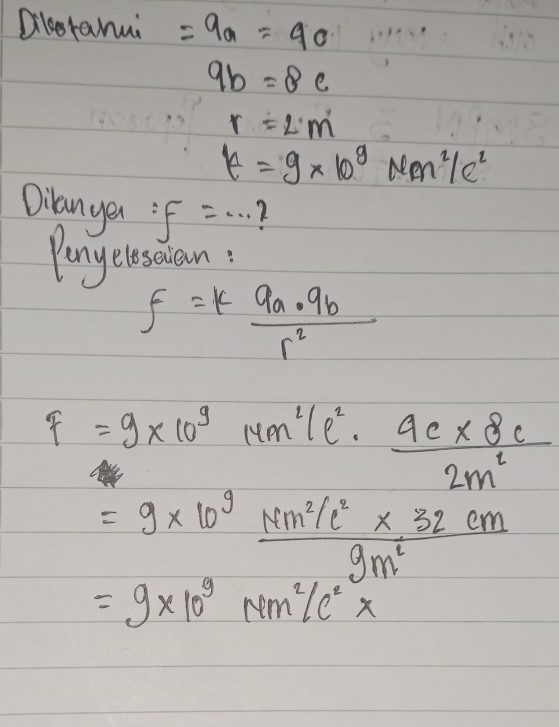 Diketahui = qa = 4c
qb = 8 c
r = 2 m
k = 9 x 10⁹ Nm²/c²
Ditanya : f = ...?
Penyelesaian :
f = k qa . qb / r²
F = 9 x 10⁹ Nm²/c² . 4c x 8c / 2m²
= 9 x 10⁹ Nm²/c² x 32 cm / 9m²
= 9 x 10⁹ Nm²/c² x